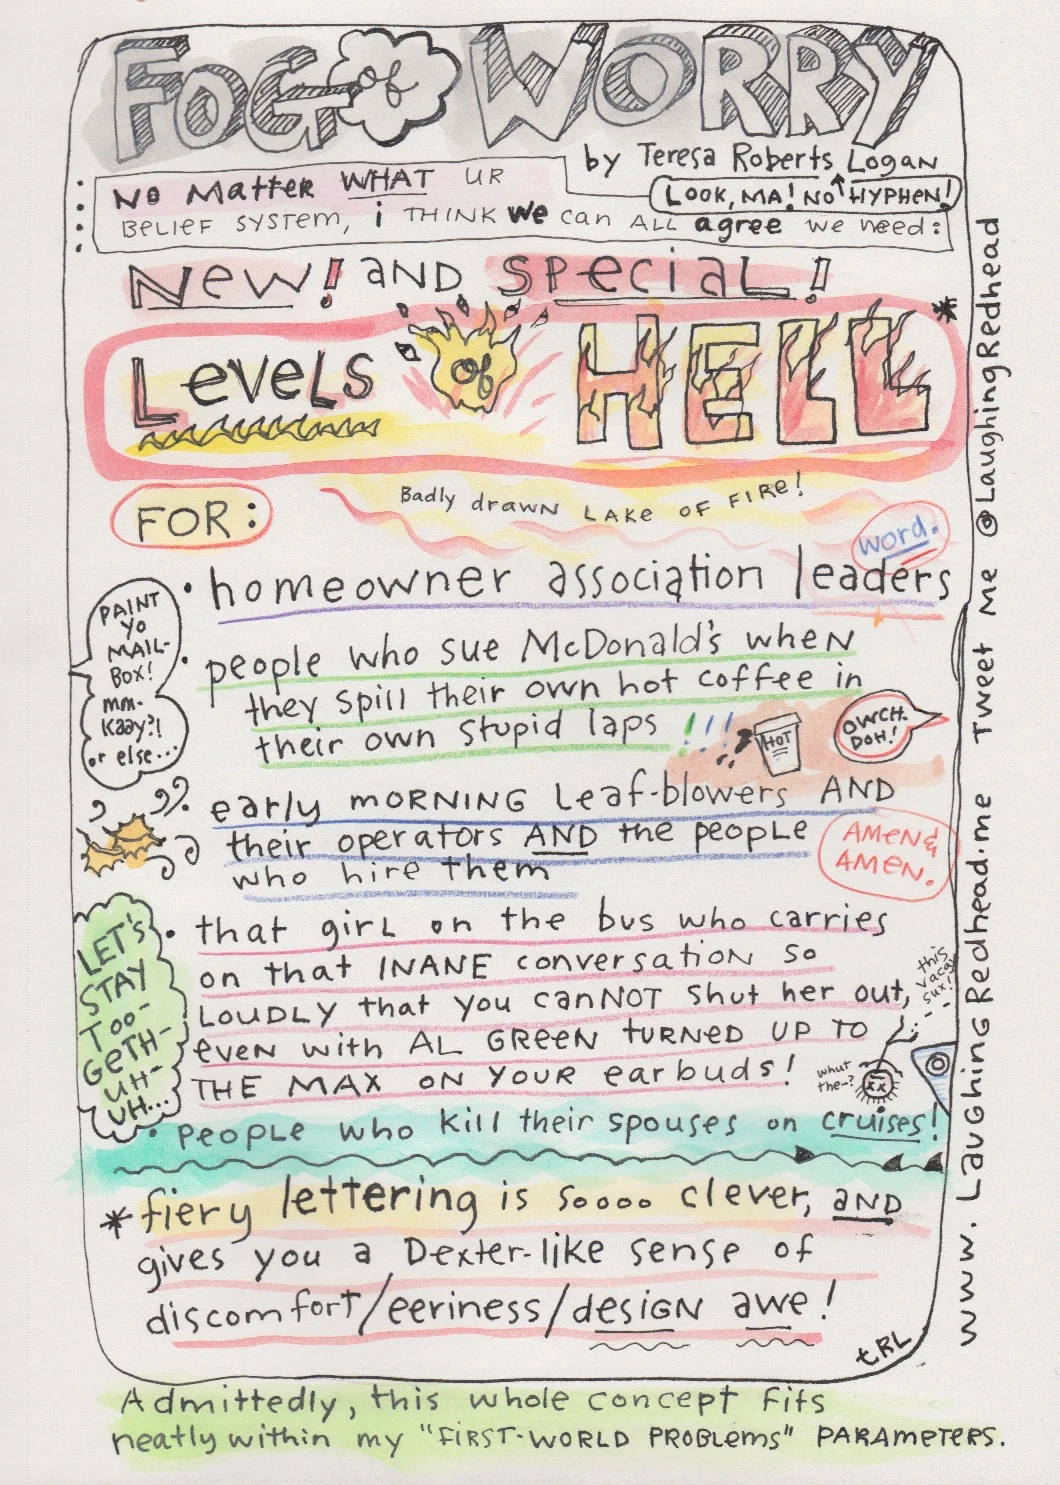 FOG of WORRY
by Teresa Roberts Logan
LOOK, MA! NO HYPHEN!
No Matter WHAT UR
BELIEF SYSTEM, i THINK we can ALL agree we need:
New! AND Special!
Levels of HELL*
Badly drawn LAKE OF FIRE!
FOR:
word.
• homeowner association leaders
PAINT
YO
MAIL-
BOX!
mm-
Kaay?!
or else...
• people who sue McDonald's when
they spill their own hot coffee in
their own stupid laps !!!
HOT
OWCH.
DOH!
early MORNING Leaf-blowers AND
their operators AND the people
who hire them
AMEN &
AMEN.
• that girl on the bus who carries
on that INANE conversation so
LOUDLY that you canNOT shut her out,
even with AL GREEN TURNED UP TO
THE MAX ON YOUR earbuds!
LET'S
STAY
Too-
GETH-
UH-
UH...
this
vacay
sux!
what
the-?
• PEOPLE who kill their spouses on cruises!
* fiery lettering is soooo clever, AND
gives you a Dexter-like sense of
discomfort/eeriness/design awe!
tRL
Admittedly, this whole concept fits
neatly within my "FIRST-WORLD PROBLEMS" PARAMETERS.
www.LaughingRedhead.me Tweet Me @LaughingRedhead